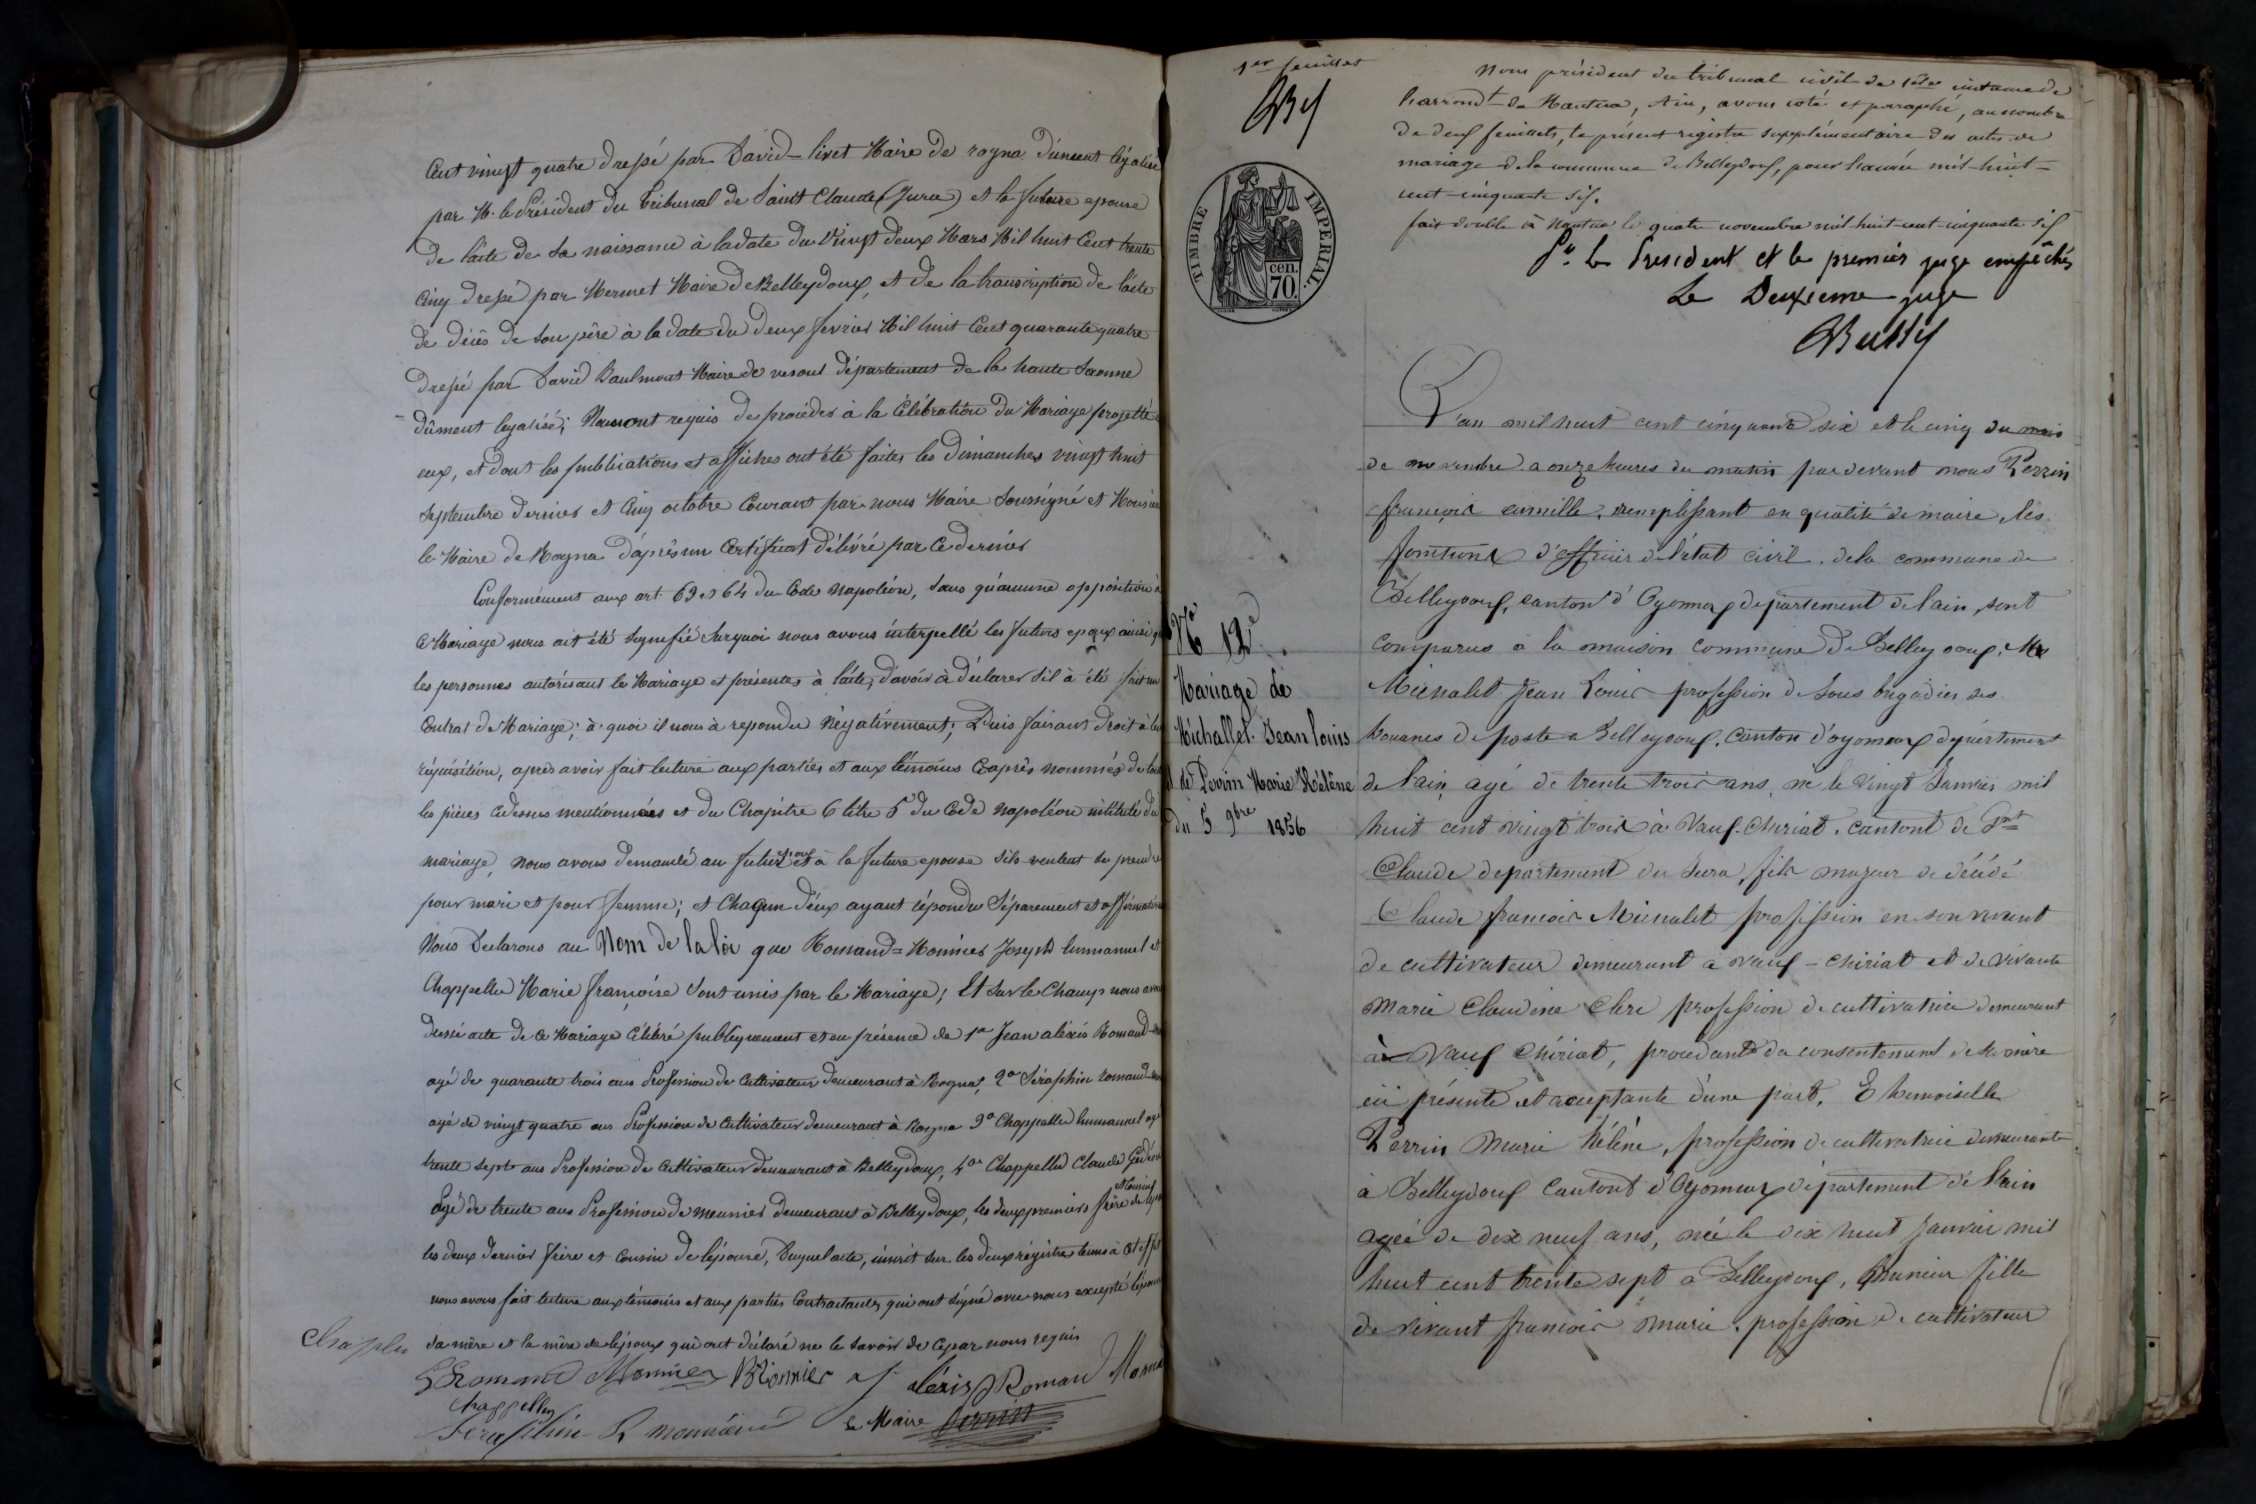 Cent vingt quatre dressé par David-livet Maire de rogna dûment légalisé
par M. le Président du Tribunal de Saint Claude (Jura) et la future epouse
de l'acte de sa naissance à la date du Vingt deux Mars Mil huit Cent trente
Cinq dressé par Mermet Maire de Belleydoux, et de la transcription de l'acte
de décès de son père à la date du deux fevrier Mil huit Cent quarante quatre
dressé par David Baulmont Maire de vesoul département de la haute Saonne
dûment legalisé; Nous ont requis de procéder à la Célébration du Mariage projetté
eux, et dont les publications et affiches ont été faites les dimanches vingt huit
Septembre dernier et Cinq octobre Courant par nous Maire Soussigné et Monsieur
le Maire de Rogna d'après un Certificat délivré par Ce dernier
Conformément aux art. 63 et 64 du Code Napoléon, Sans qu'aucune opposition à
Ce Mariage nous ait été Signifié Surquoi nous avons interpellé les futurs epoux ainsi que
les personnes autorisant le Mariage et présentes à l'acte, d'avoir à déclarer S'il à été fait un
Contrat de Mariage; à quoi il nous à repondu Négativement; Puis faisant droit à leur
réquisition, après avoir fait lecture aux parties et aux témoins Ciaprès nommés de toutes
les pièces cidessus mentionnées et du Chapitre 6 titre 5 du Code Napoléon intitulé du
mariage, nous avons demandé au futur epoux et à la future epouse S'ils veulent se prendre
pour mari et pour femme; et Chaqun d'eux ayant répondu Séparement et affirmativement
Nous Déclarons au Nom de la loi que Romand=Monnier Joseph Emmanuel et
Chappellu Marie françoise Sont unis par le Mariage; Et Sur le Champ nous avons
dressé acte de Ce Mariage Célébré publiquement et en présence de 1º Jean alexis Romand
agé de quarante trois ans Profession de Cultivateur demeurant à Rogna, 2º Séraphin romand
agé de vingt quatre ans Profession de Cultivateur demeurant à Rogna 3º Chappellu Emmanuel agé
trente sept ans Profession de Cultivateur demeurant à Belleydoux, 4º Chappellu Claude
Agé de trente ans Profession de meunier demeurant à Belleydoux, les deux premiers frère et Cousin de l'epoux
les deux dernier frère et Cousin de l'épouse, Duquel acte, inscrit sur les deux régistre tenus à Cet effet
nous avons fait lecture aux témoins et aux parties Contractantes qui ont Signé avec nous excepté l'epouse
sa mère et la mère de l'époux qui ont déclaré ne le Savoir de Ce par nous requis
Chappellu
Romand Monnier Monnier J alexis Roman Monnier
Chappellu
Séraphin R monnier le Maire Perrin
1er feuillet
By
TIMBRE IMPERIAL
cen. 70.
Nous président du tribunal civil de 1ère instance de
l'arrondt de Nantua, Ain, avons coté et paraphé, au nombre
de deux feuillets, le présent registre supplémentaire des actes de
mariage de la commune de Belleydoux, pour l'année mil-huit-
cent-cinquante six.
fait double à Nantua le quatre novembre mil-huit-cent-cinquante six
Pr. le President et le premier juge empêchés
Le Deuxieme juge
Bussy
L'an mil huit cent cinquante six et le cinq du mois
de novembre a onze heures du matin par devant nous Perrin
françois camille, remplissant en qualité de maire, les
fonctions d'officier de l'état civil de la commune de
Belleydoux, canton d'Oyonnax departement de l'ain, sont
comparus a la maison commune de Belleydoux, Mr
Michalet Jean Louis profession de Sous brigadier des
Douanes de poste a Belleydoux, Canton d'oyonnax département
de l'ain, agé de trente trois ans, né le vingt Janvier mil
huit cent vingt trois à Vaux-chiriat, cantont de St
Claude departement du Jura, fils majeur de décédé
Claude françois Michalet profession en son vivant
de cultivateur demeurant a vaux-chiriat et de vivante
Marie Claudine Clerc profession de cultivatrice demeurant
à Vaux chiriat, procedant du consentement de sa mère
ici présente et acceptante d'une part, Et demoiselle
Perrin Marie hélène, profession de cultivatrice demeurante
à Belleydoux Cantont d'Oyonnax département de l'Ain
agée de dix neuf ans, née le dix huit Janvier mil
huit cent trente sept a Belleydoux, mineur fille
de vivant françois marie, profession de cultivateur
No 12.
Mariage de
Michallet Jean louis
et de Perrin Marie Hélène
du 5 9bre 1856